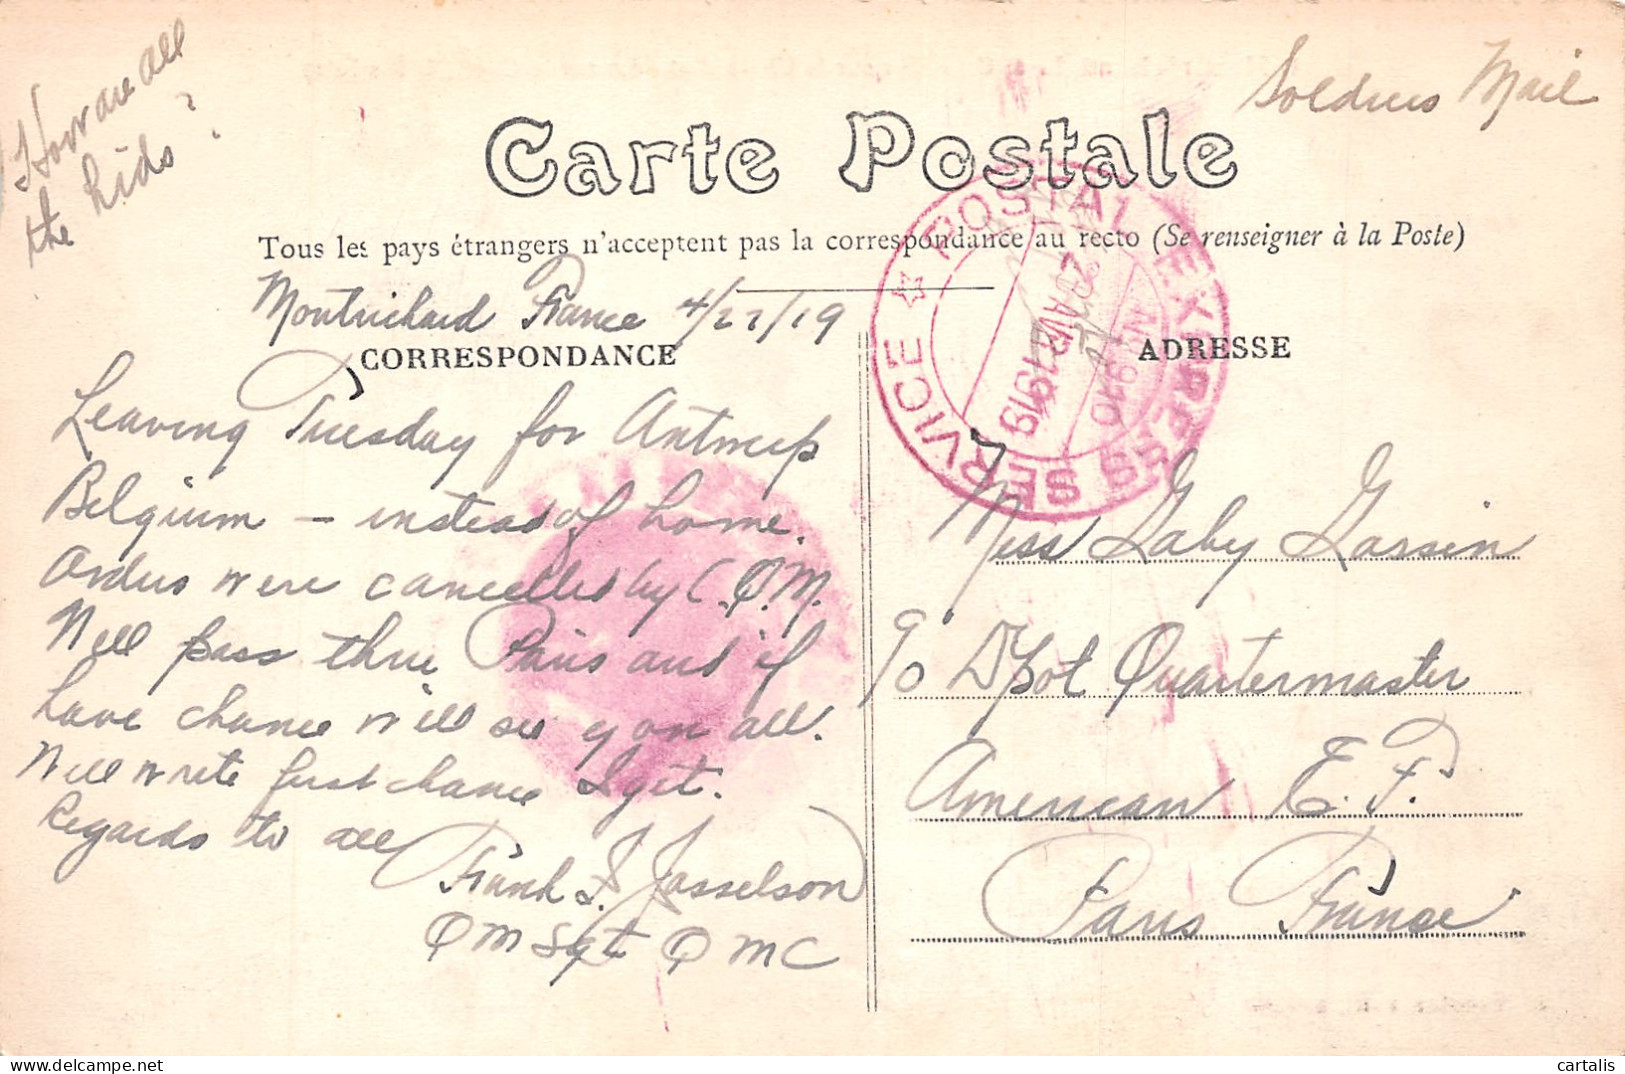 How are all
the kids?
Soldiers Mail
Carte Postale
Tous les pays étrangers n'acceptent pas la correspondance au recto (Se renseigner à la Poste)
Montrichard France 4/27/19
CORRESPONDANCE
Leaving Tuesday for Antwerp
Belgium – instead of home.
Orders were cancelled by C.Q.M.
Will pass thru Paris and if
have chance will see you all.
Will write first chance I get.
Regards to all
Frank J. Josselson
QM Sgt QMC
POSTAL EXPRESS SERVICE
1919
ADRESSE
Miss Gaby Garsin
c/o Depot Quartermaster
American E. F.
Paris France
cartalis